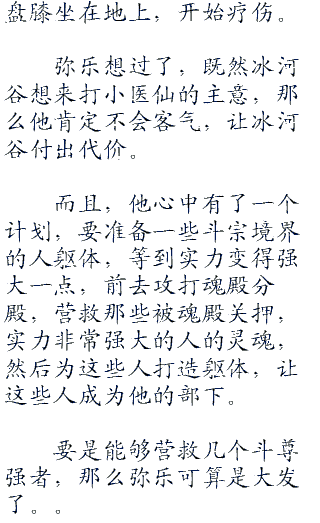 盘膝坐在地上，开始疗伤。
弥乐想过了，既然冰河
谷想来打小医仙的主意，那
么他肯定不会客气，让冰河
谷付出代价。
而且，他心中有了一个
计划，要准备一些斗宗境界
的人躯体，等到实力变得强
大一点，前去攻打魂殿分
殿，营救那些被魂殿关押，
实力非常强大的人的灵魂，
然后为这些人打造躯体，让
这些人成为他的部下。
要是能够营救几个斗尊
强者，那么弥乐可算是大发
了。。